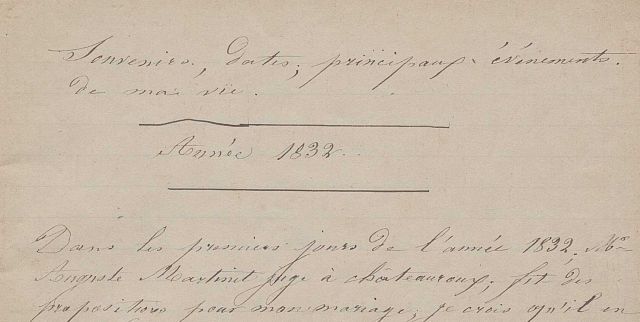 Souvenirs, dates, principaux événements.
de ma vie.
Année 1832.
Dans les premiers jours de l'année 1832. Mr
Auguste Martinet juge à châteauroux, fit des
propositions pour mon mariage, je crois qu'il en